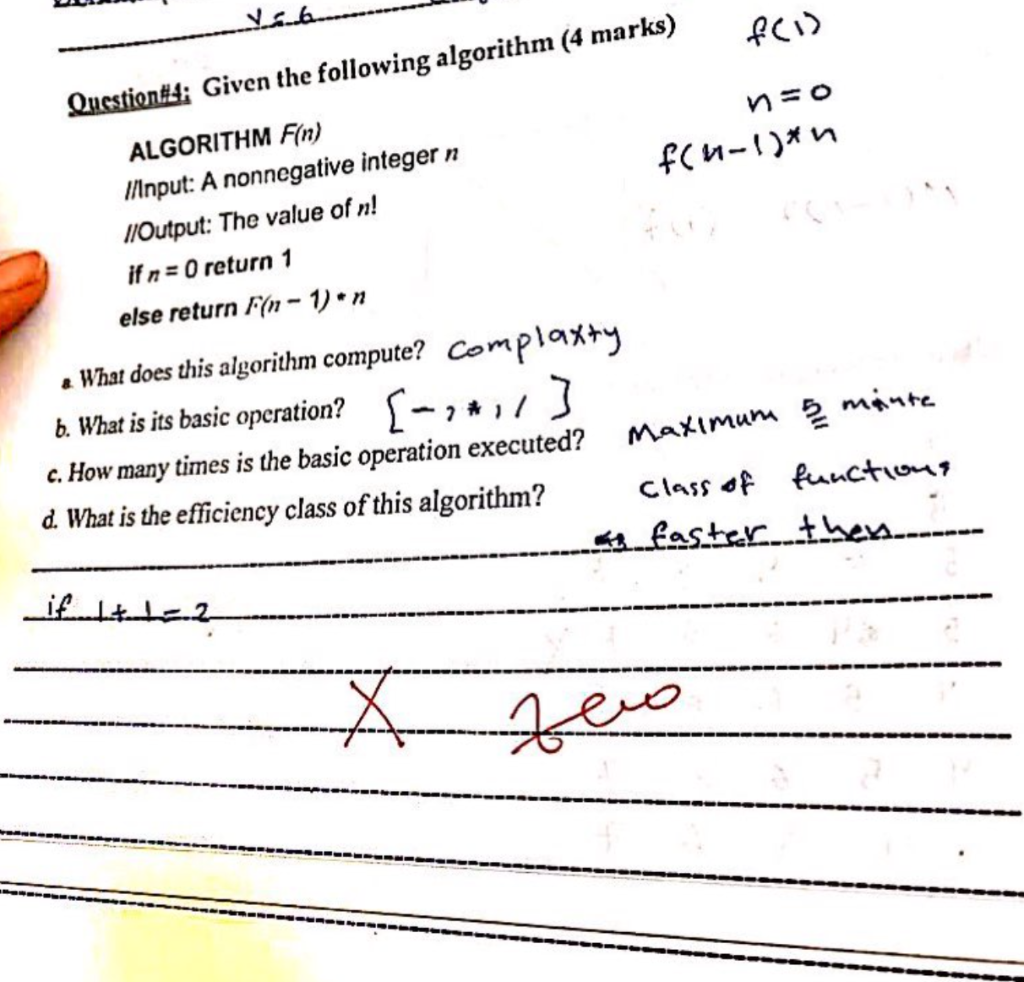 Y = 6
Question#4: Given the following algorithm (4 marks)
f(1)
n=0
f(n-1)*n
ALGORITHM F(n)
//Input: A nonnegative integer n
//Output: The value of n!
if n = 0 return 1
else return F(n − 1) * n
a. What does this algorithm compute? Complaxty
b. What is its basic operation? [-, *, /]
c. How many times is the basic operation executed? Maximum 5 minte
d. What is the efficiency class of this algorithm? Class of functions
faster then
if 1+1=2
X zero